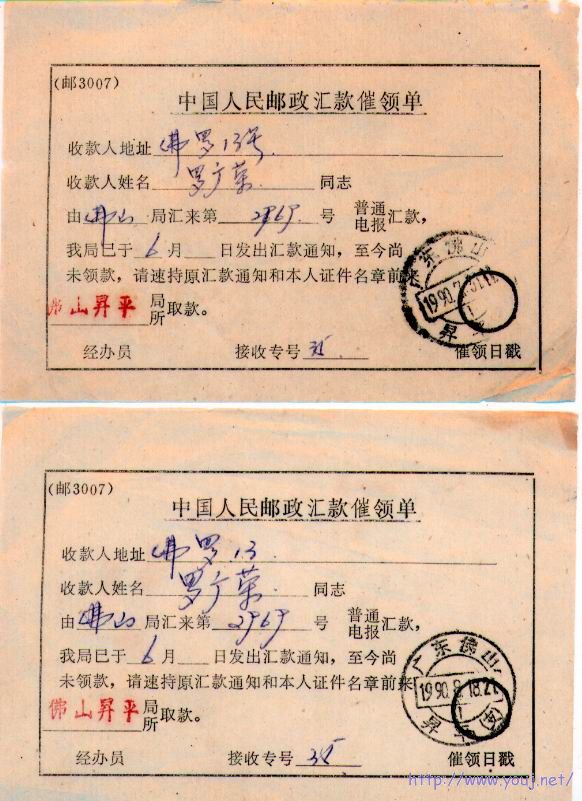 (邮3007)
中国人民邮政汇款催领单
收款人地址 佛罗13号
收款人姓名 罗广荣 同志
由 佛山 局汇来第 2969 号 普通 电报 汇款，
我局已于 6 月 日发出汇款通知，至今尚
未领款，请速持原汇款通知和本人证件名章前来
佛山昇平 局 所 取款。
广东佛山
1990.7
昇
经办员 接收专号 35 催领日戳
(邮3007)
中国人民邮政汇款催领单
收款人地址 佛罗13
收款人姓名 罗广荣 同志
由 佛山 局汇来第 2969 号 普通 电报 汇款，
我局已于 6 月 日发出汇款通知，至今尚
未领款，请速持原汇款通知和本人证件名章前来
佛山昇平 局 所 取款。
广东佛山
1990.8.18.21
昇
经办员 接收专号 35 催领日戳
http://www.youj.net/